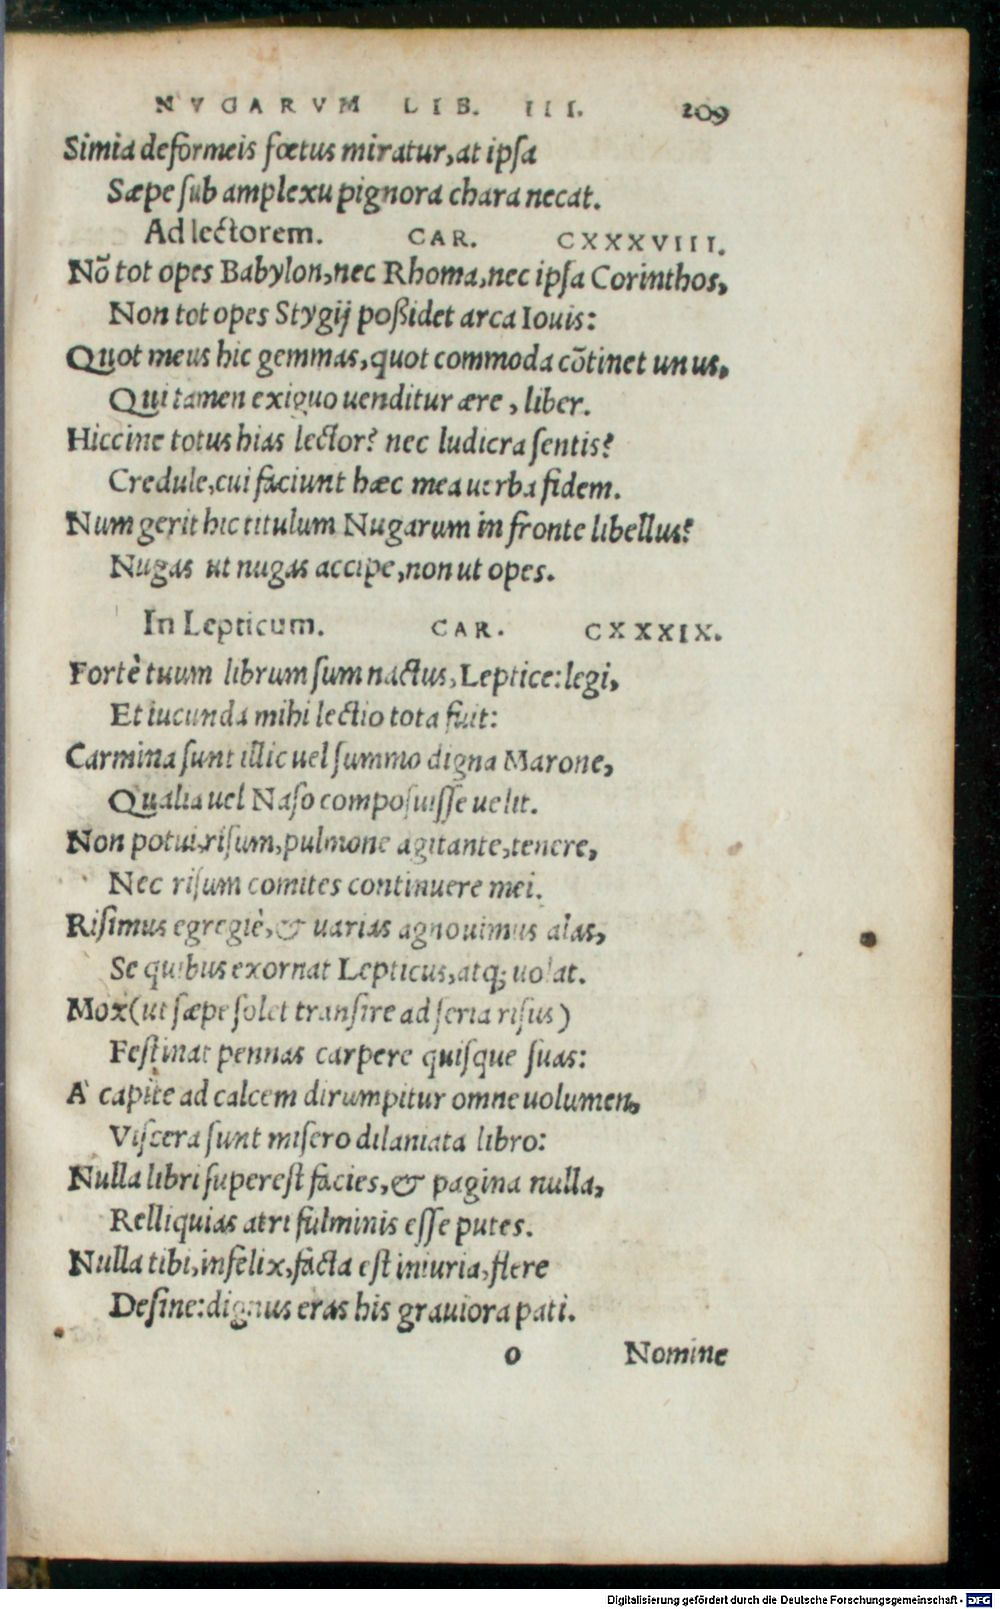 NVGARVM LIB. III. 209
Simia deformeis fœtus miratur, at ipſa
Sæpe ſub amplexu pignora chara necat.
Ad lectorem. CAR. CXXXVIII.
Nõ tot opes Babylon, nec Rhoma, nec ipſa Corinthos,
Non tot opes Stygij poßidet arca Iouis:
Quot meus hic gemmas, quot commoda cõtinet unus,
Qui tamen exiguo uenditur ære, liber.
Hiccine totus hias lector? nec ludicra ſentis?
Credule, cui faciunt hæc mea uerba fidem.
Num gerit hic titulum Nugarum in fronte libellus?
Nugas ut nugas accipe, non ut opes.
In Lepticum. CAR. CXXXIX.
Fortè tuum librum ſum nactus, Leptice: legi,
Et iucunda mihi lectio tota fuit:
Carmina ſunt illic uel ſummo digna Marone,
Qualia uel Naſo compoſuiſſe uelit.
Non potui riſum, pulmone agitante, tenere,
Nec riſum comites continuere mei.
Riſimus egregiè, & uarias agnouimus alas,
Se quibus exornat Lepticus, atq; uolat.
Mox (ut ſæpe ſolet tranſire ad ſeria riſus)
Feſtinat pennas carpere quiſque ſuas:
A' capite ad calcem dirumpitur omne uolumen,
Viſcera ſunt miſero dilaniata libro:
Nulla libri ſupereſt facies, & pagina nulla,
Relliquias atri fulminis eſſe putes.
Nulla tibi, infelix, facta eſt iniuria, flere
Deſine: dignus eras his grauiora pati.
o Nomine
Digitalisierung gefördert durch die Deutsche Forschungsgemeinschaft - DFG